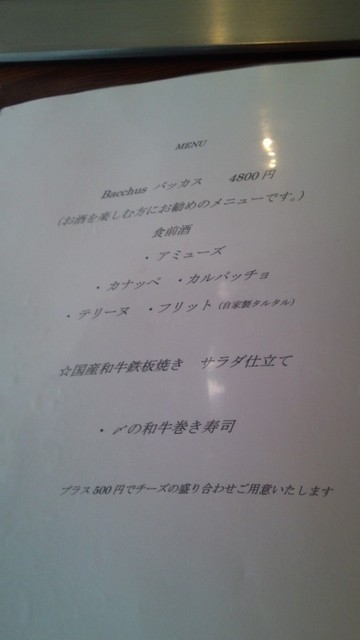 MENU
Bacchus バッカス 4800円
(お酒を楽しむ方にお勧めのメニューです。)
食前酒
・アミューズ
・カナッペ ・カルパッチョ
・テリーヌ ・フリット (自家製タルタル)
☆国産和牛鉄板焼き サラダ仕立て
・〆の和牛巻き寿司
プラス500円でチーズの盛り合わせご用意いたします